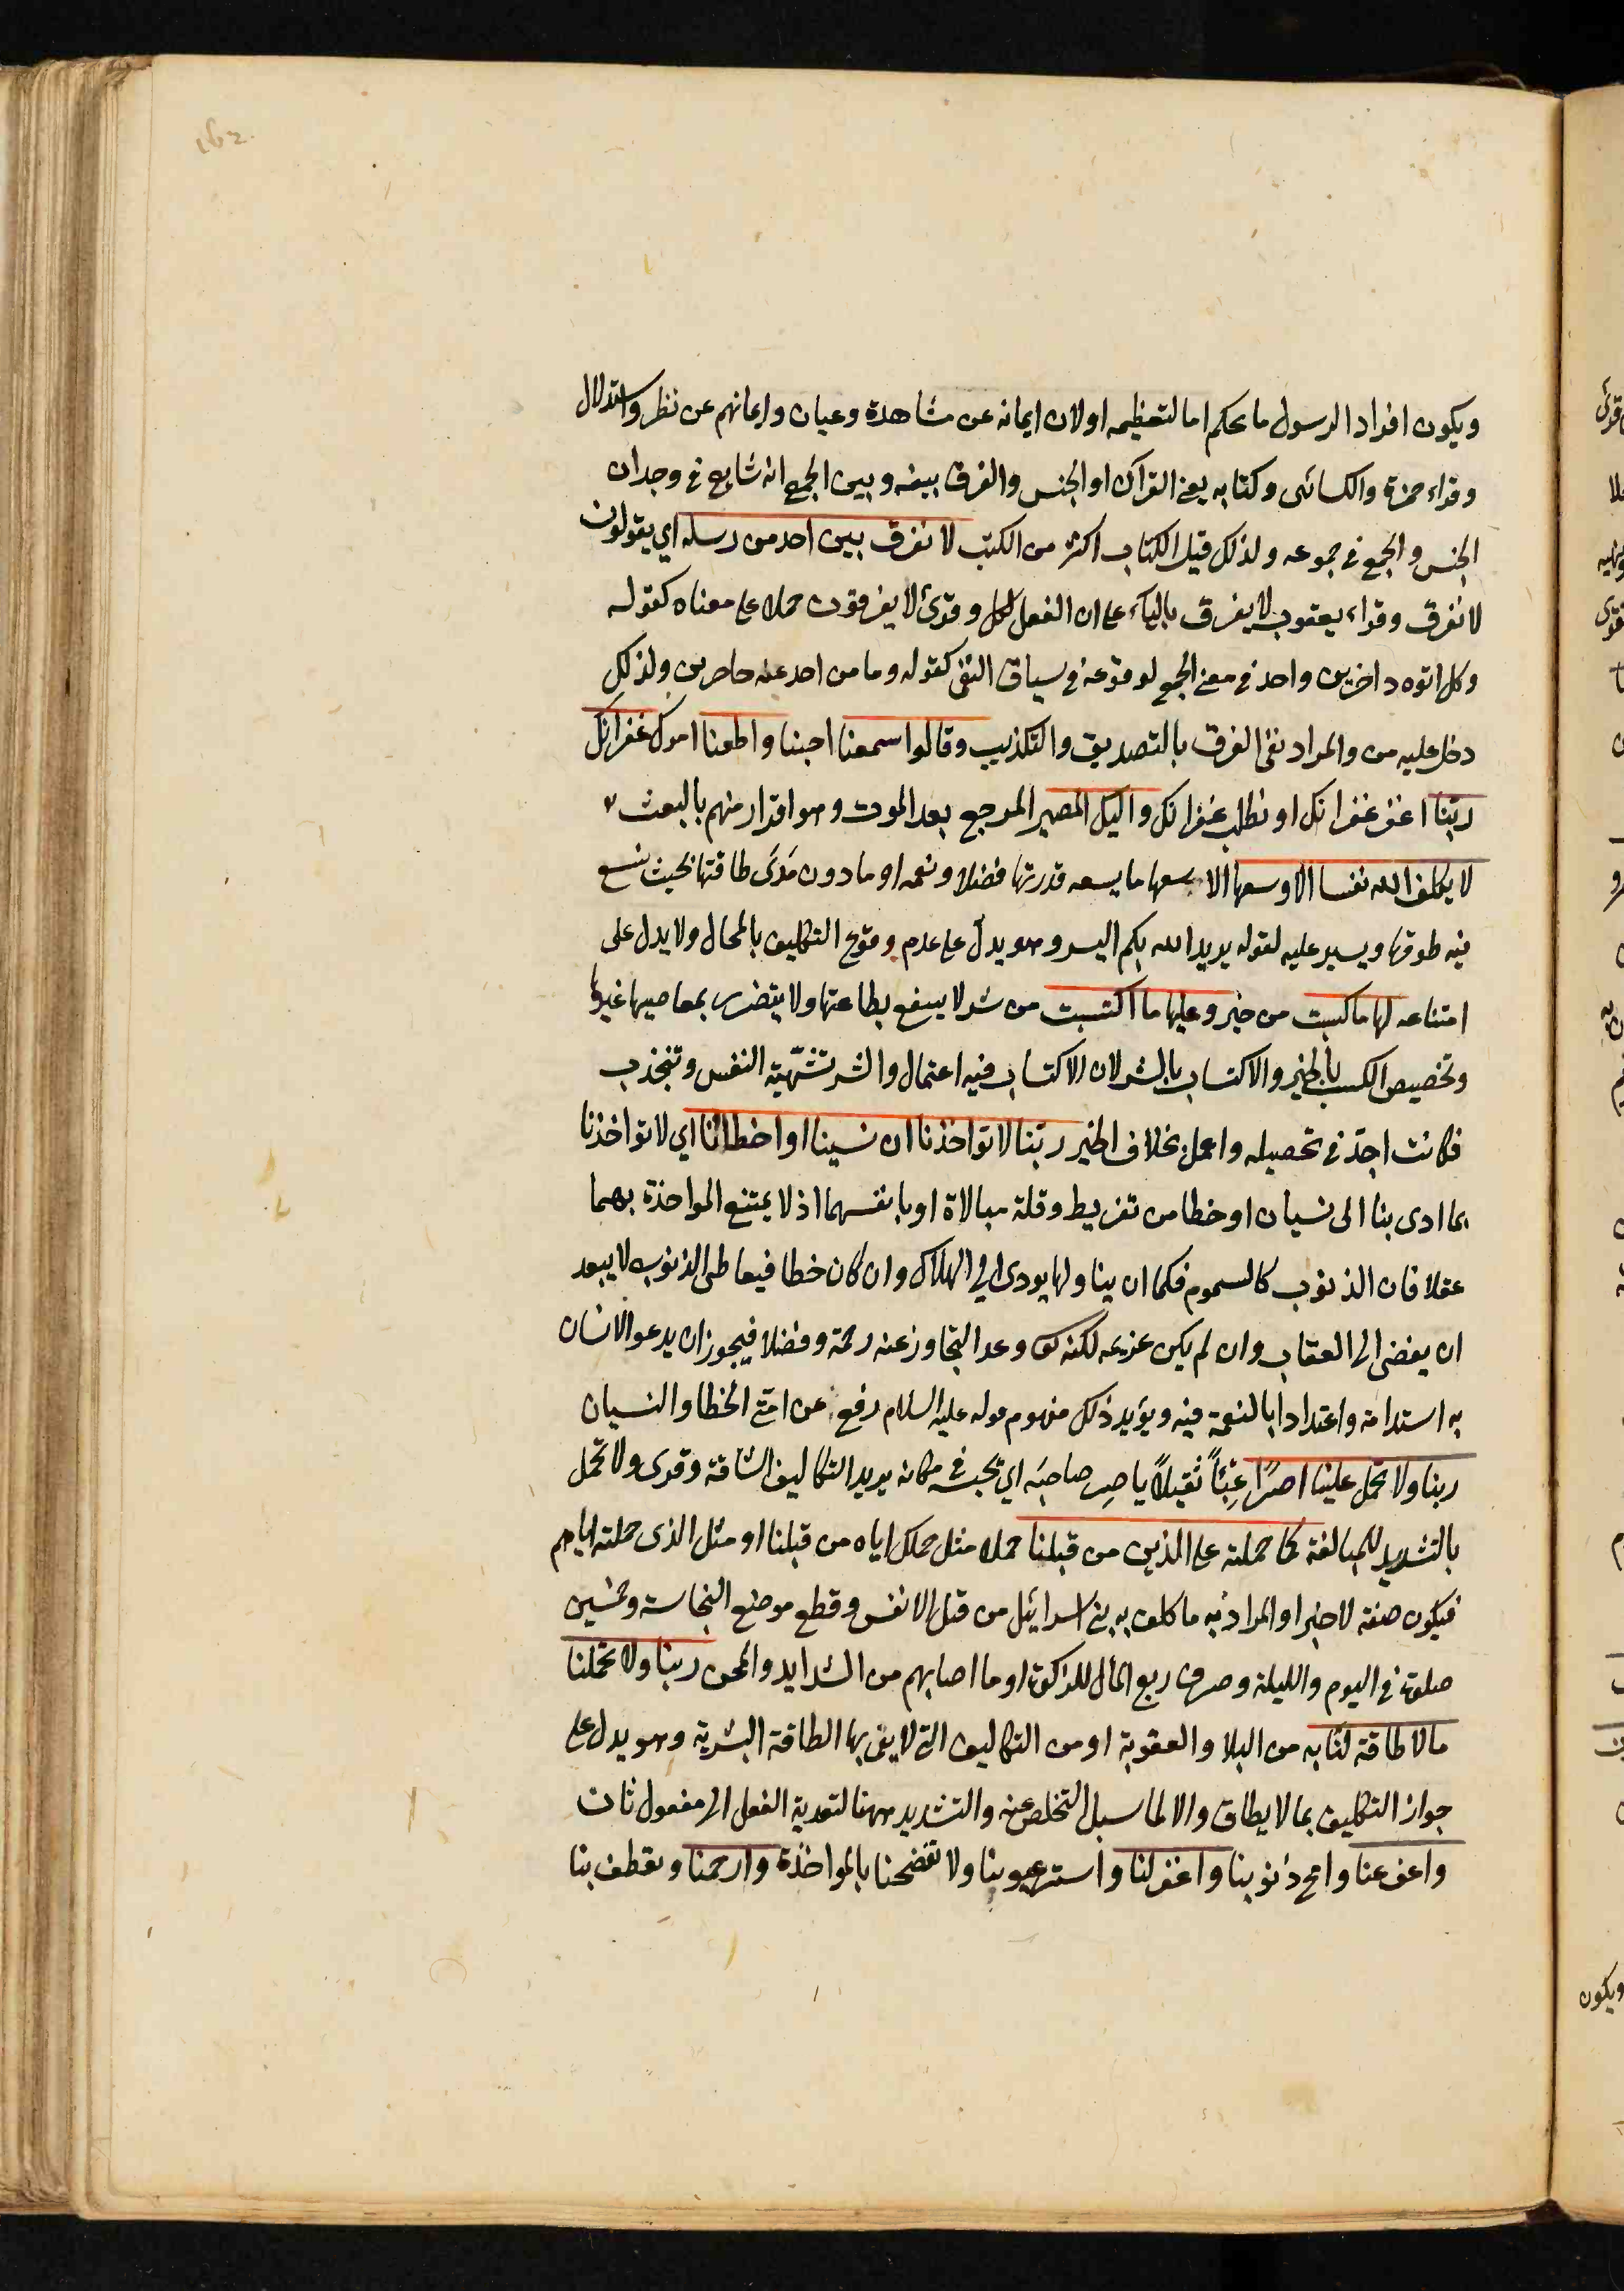 ويكون افراد الرسول ما يحكم اما لتعظيمه اولان ايمانه عن مشاهدة وعيان وايمانهم عن نظر واستدلال
وقراء حمزة والكسائى وكتابه يعنى القرآن او الجنس والفرق بينه وبين الجمع انه شايع في وجدان
الجنس والجمع في جموعه ولذلك قيل الكتاب اكثر من الكتب لا نفرق بين احد من رسله اي يقولون
لا نفرق وقراء يعقوب لا يفرق بالياء على ان الفعل لكل وقرئ لا يفرقون حملا على معناه كقوله
وكل اتوه داخرين واحد في معنى الجمع لوقوعه في سياق النفى كقوله وما من احد عنه حاجزين ولذلك
دخل عليه من والمراد نفى الفرق بالتصديق والتكذيب وقالوا سمعنا اجبنا واطعنا امرك غفرانك
ربنا اغفر غفرانك او نطلب غفرانك واليك المصير المرجع بعد الموت وهو اقرار منهم بالبعث
لا يكلف الله نفسا الا وسعها الا يسعها ما يسعه قدرتها فضلا ونعمه او ما دون مدى طاقتها بحيث يتسع
فيه طوقها ويسير عليه لقوله يريد الله بكم اليسر وهو يدل على عدم وقوع التكليف بالمحال ولا يدل على
امتناعه لها ما كسبت من خير وعليها ما اكتسبت من شر لا ينتفع بطاعتها ولا يتضرر بمعاصيها غيرها
وتخصيص الكسب بالخير والاكتساب بالشر لان الاكتساب فيه اعتمال والشر تشتهيه النفس وتنجذب
فكانت اجد في تحصيله واعمل بخلاف الخير ربنا لا تواخذنا ان نسينا او اخطائنا اي لا تواخذنا
بما ادى بنا الى نسيان او خطا من تفريط وقلة مبالاة او بانفسهما اذ لا يمتنع المواخذة بهما
عقلا فان الذنوب كالسموم فكما ان يتناولها يودى الى الهلاك وان كان خطا فيعاطى الذنوب لا يبعد
ان يفضى الى العقاب وان لم يكن عزيمه لكنه تعالى وعد التجاوز عنه رحمة وفضلا فيجوز ان يدعو الانسان
به استدامة واعتدادا بالنعمة فيه ويؤيد ذلك مفهوم قوله عليه السلام رفع عن امتى الخطا والنسيان
ربنا ولا تحمل علينا اصرًا عِبْئاً ثقيلاً ياصِر صاحبَه اي يحبسه في مكانه يريد التكاليف الشاقة وقرى ولا تحمل
بالتشديد للمبالغة كما حملته على الذين من قبلنا حملا مثل حملك اياه من قبلنا او مثل الذى حملته اياهم
فيكون صفة لاصرا والمراد به ما كلف به بنى اسرائيل من قتل الانفس وقطع موضع النجاسة وخمسين
صلوة في اليوم والليلة وصرف ربع المال للزكوة او ما اصابهم من الشدايد والمحن ربنا ولا تحملنا
مالا طاقة لنا به من البلا والعقوبة او من التكاليف التى لا يفى بها الطاقة البشرية وهو يدل على
جواز التكليف بما لا يطاق والا لما سيل التخلص عنه والتشديد ههنا لتعدية الفعل الى مفعول ثان
واعف عنا وامح ذنوبنا واغفر لنا واستر عيوبنا ولا تفضحنا بالمواخذة وارحمنا وتعطف بنا